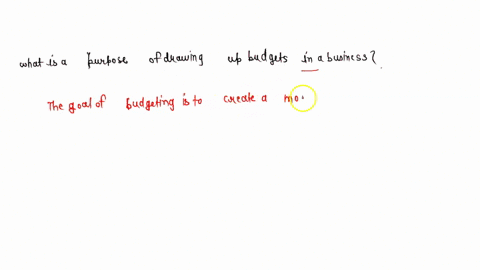 what is a purpose of drawing up budgets in a business?
The goal of budgeting is to create a mo